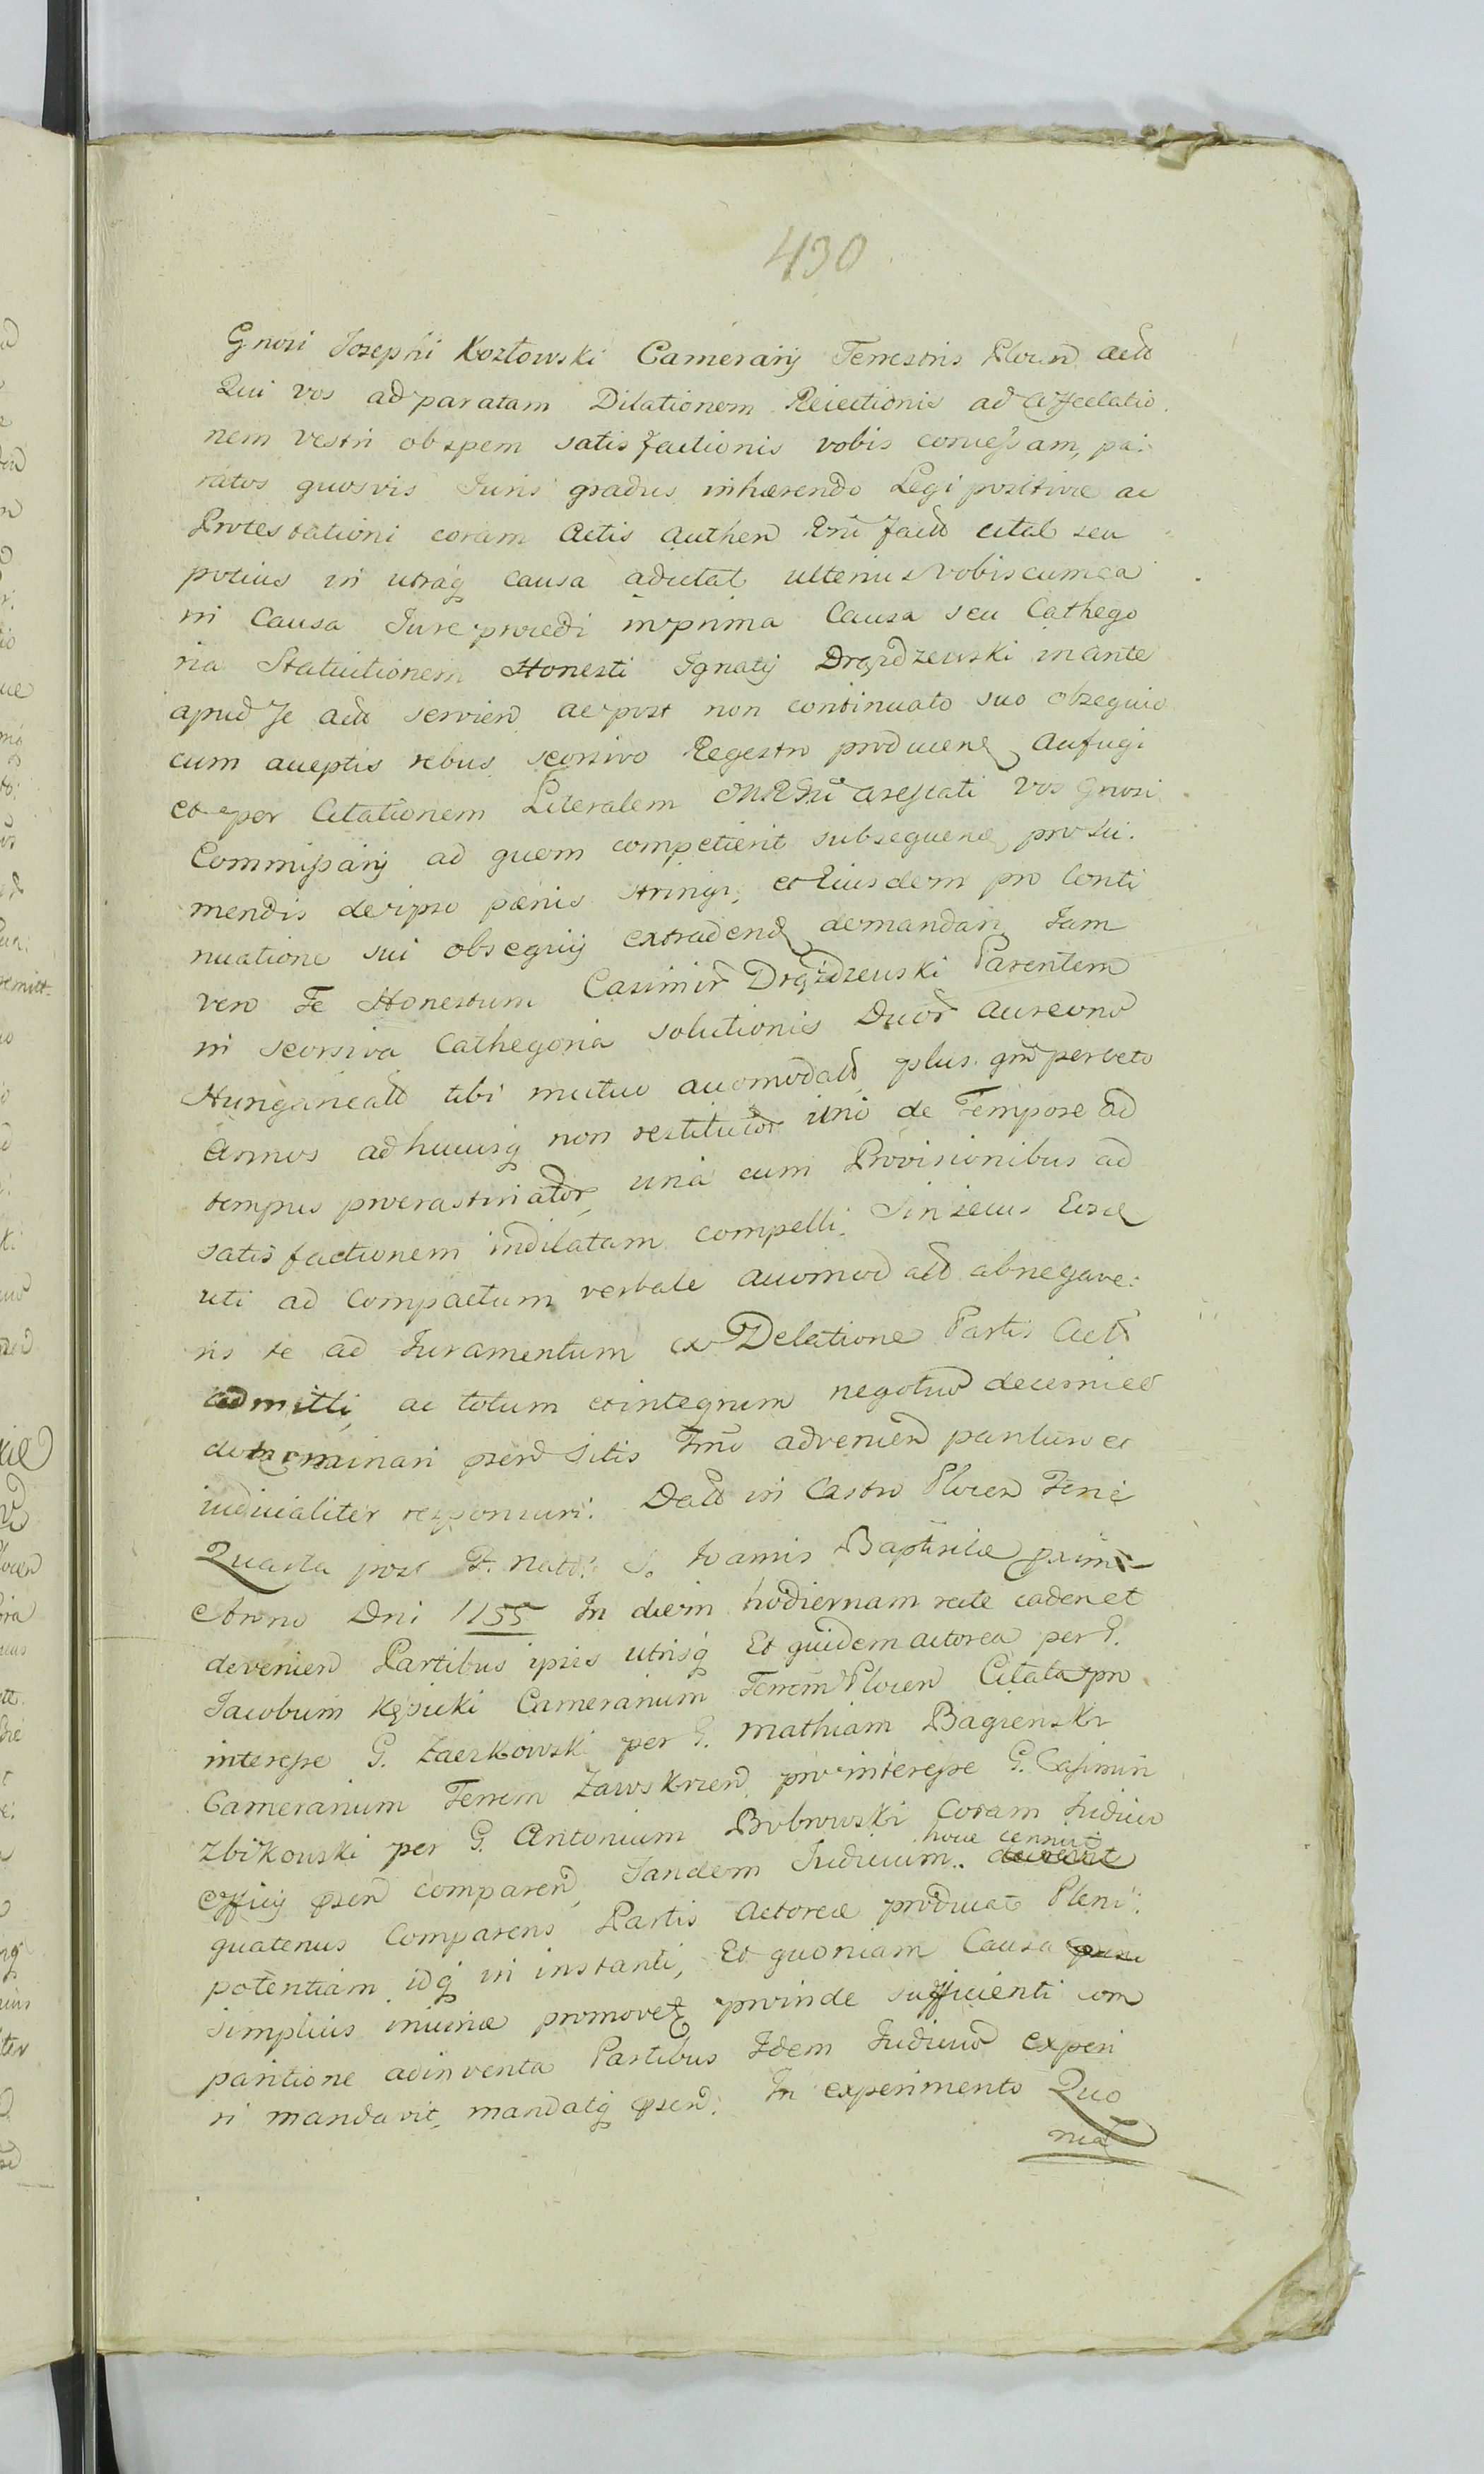 430
Gnosi Josephi Kozłowski Camerarij Terrestris Plocen actt
Qui vos ad paratam Dilationem Reiectionis ad
nem vestri ob spem satisfactionis vobis concessam, pa:
ratos quosvis Iuris gradus inhærendo Legi positivæ ac
Protestationi coram Actis Authen factt citat seu
potius in utraq causa adcitat ulterius vobiscum ea
in Causa Jure procedi in prima Causa seu Cathego
ria Statuitionem Honesti Ignatij Drązdzewski in ante
apud se actt servien ac post non continuato suo obsequio
cum acceptis rebus seorsivo Regestro producen aufugi
et per Citationem Literalem arestati Vos Gnosi
Commissarij ad quem competierit subsequen pro sui:
mendis de ipso pænis stringi, et Eiusdem pro Conti
nuatione sui obsequij extraden demandari Jam
vero Te Honestum Casimir Drązdzewski Parentem
in seorsiva Cathegoria solutionis Duor Aureorum
Hungaricall tibi mutuo accomodatt plus qm per octo
Annos adhucusq non restitutor imo de Tempore ad
tempus procrastinator, una cum Provisionibus ad
satisfactionem indilatam compelli, Sin secus
uti ad Compactum verbale accomodatt abnegave:
ris te ad Juramentum ex Delatione Partis Act
admitti, ac totum et integrum negotium decerni et
determinari psen Sitis Tmo advenien parituri et
iudicialiter responsuri. Datt in Castro Plocen Feria
Quarta post F. Nattis S. Joannis Baptistæ
Anno Dni 1755 In diem hodiernam recte caden et
devenien Partibus ipsis utrisq Et quidem actorea per G.
Jacobum Kęsicki Camerarium Terrem Plocen Citata pro
interesse G. Zaczkowski per G. Mathiam Bagienski
Camerarium Terrem Zawskrzen, pro interesse G. Casimiri
Zbikowski per G. Antonium Bobrowski Coram Iudicio
Officij psen comparen, Tandem Iudicium hocce cennuit
quatenus Comparens Partis Actoreæ producat Pleni:
potentiam idq in instanti, Et quoniam Causa
simplicis iniuriæ promovet, proinde sufficienti com
paritione adinventa Partibus Idem Iudicium experi
ri mandavit, mandatq psen. In experimento Quo
nia